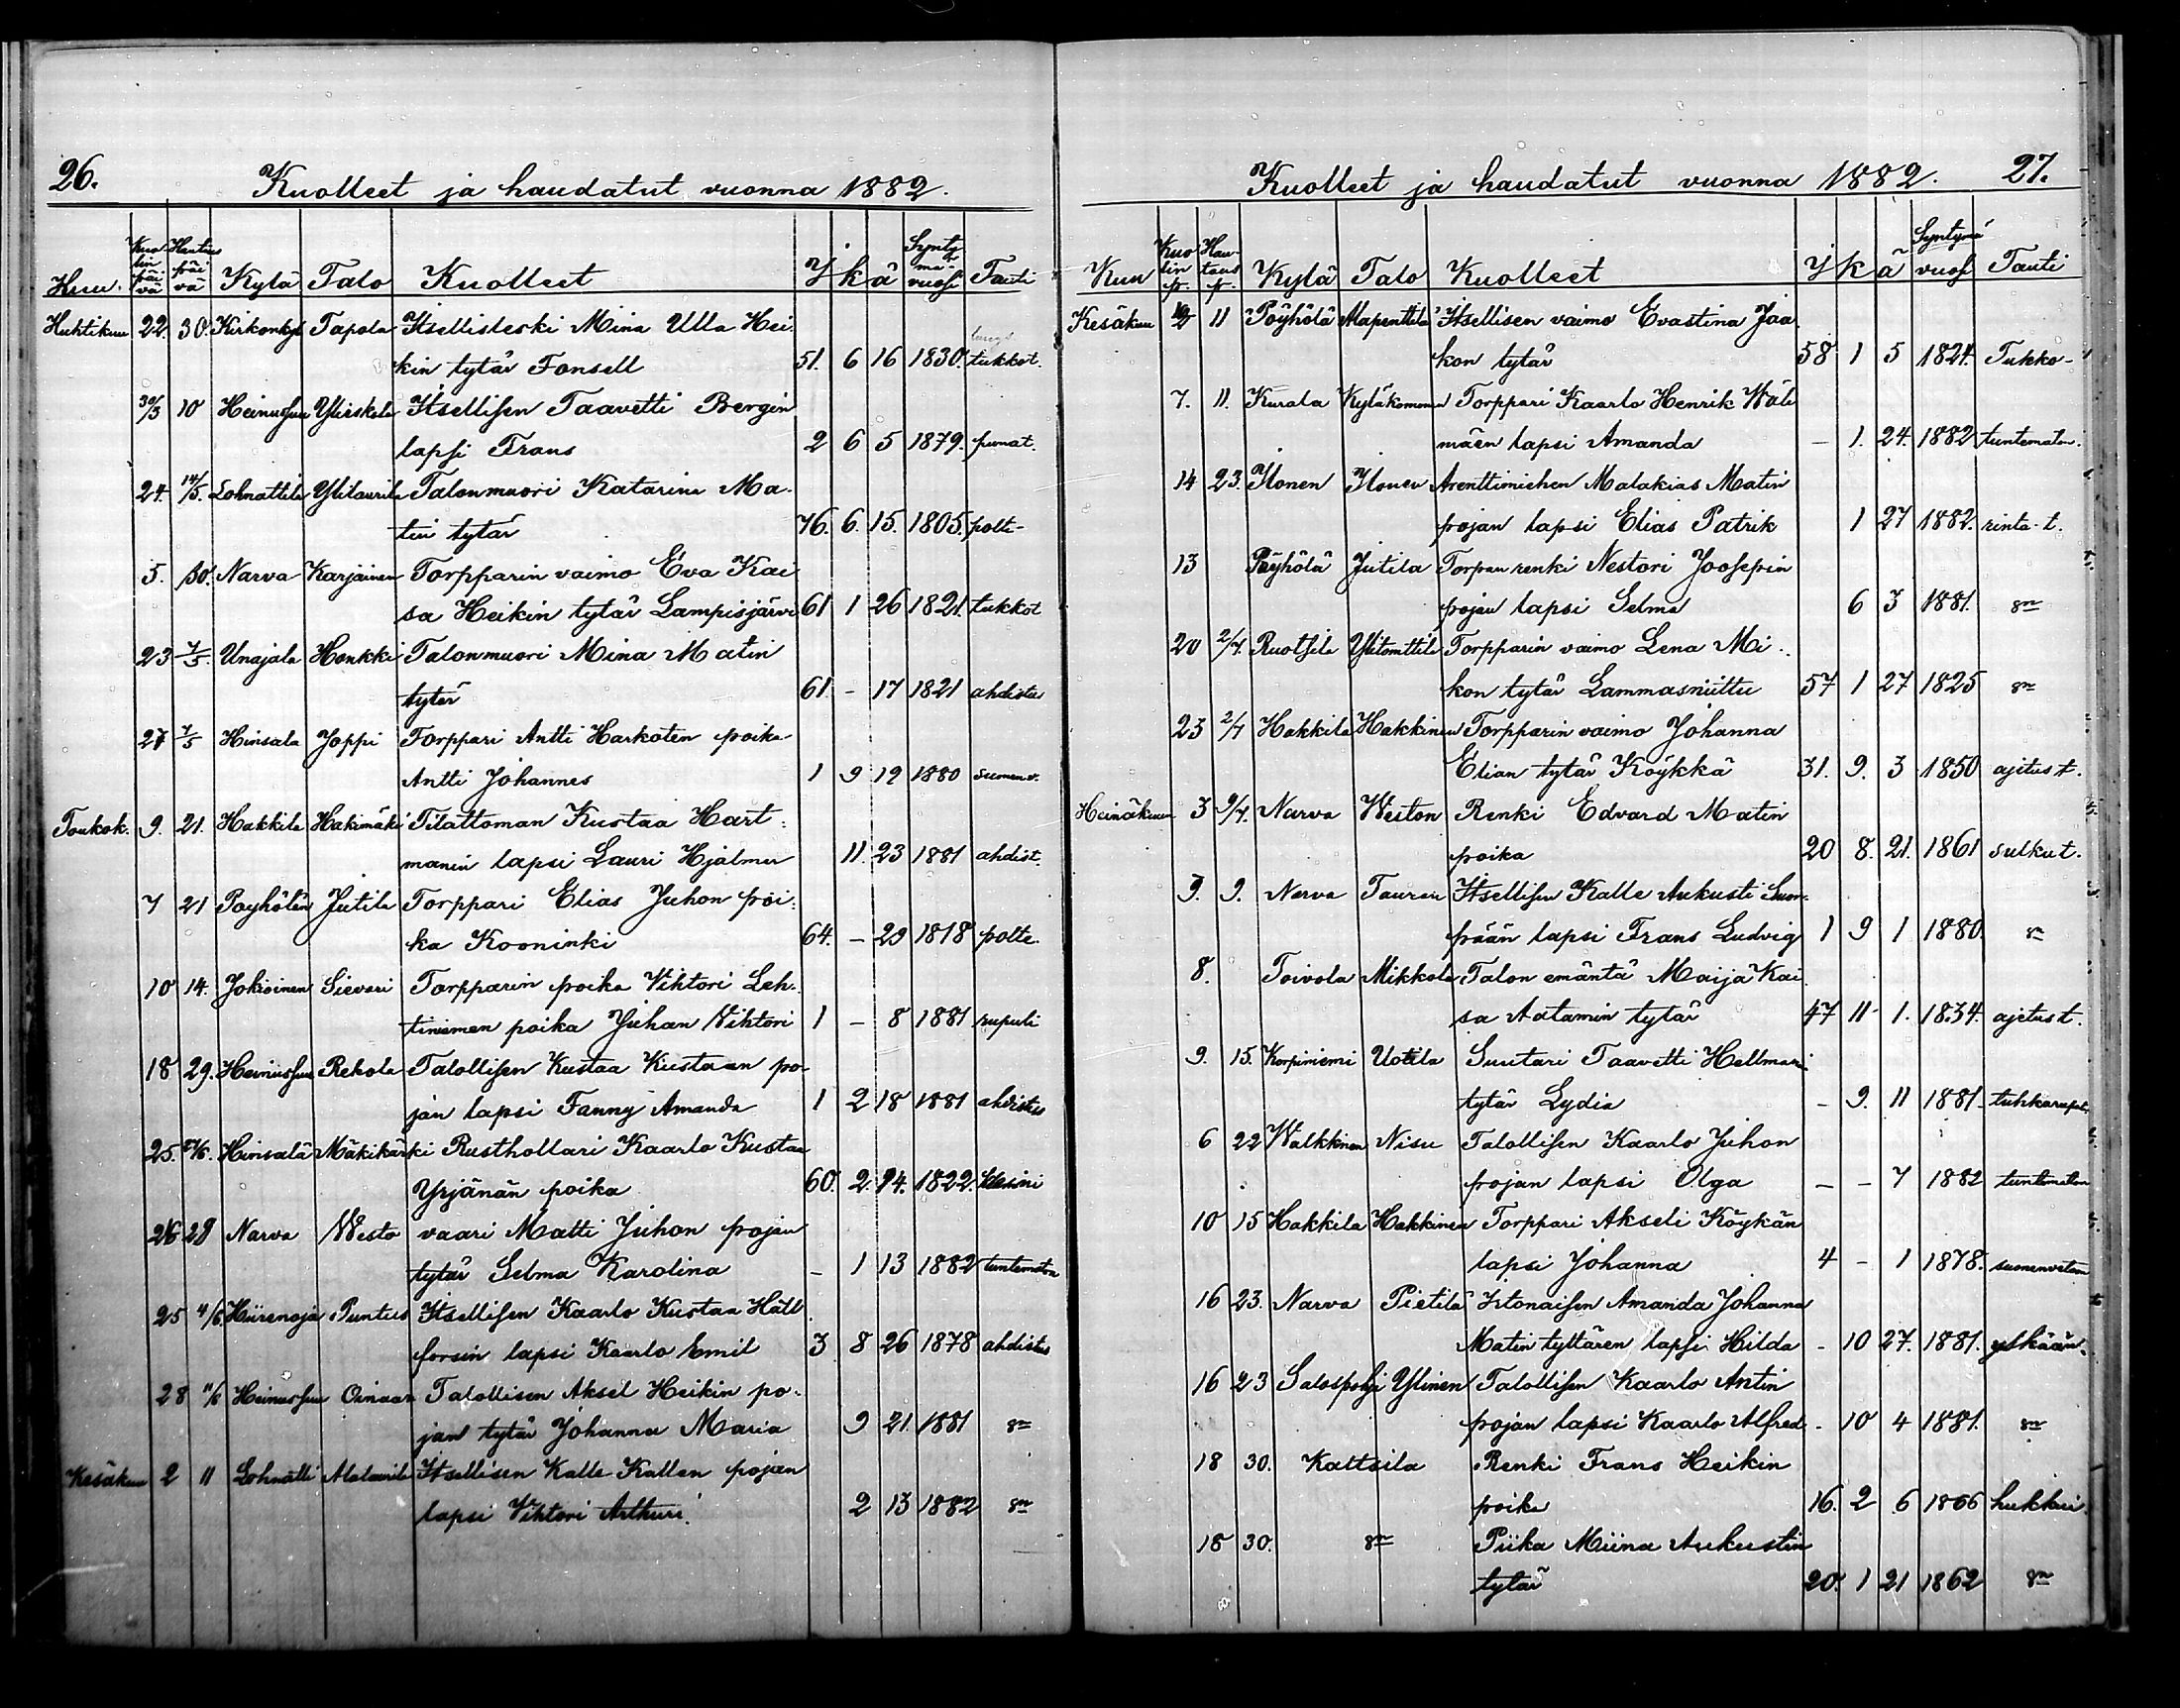 26.
Kuolleet ja haudatut vuonna 1882.
Kuu. Kuolin päivä Hautaus päivä Kylä Talo Kuolleet V. k. ä Syntymävuosi Tauti
Huhtikuu 22. 30. Kirkonkyl Tapola Itsellisleski Mina Ulla Hei
kin tytär Fonsell 51. 6 16 1830. tukkot.
30/3 10 Heinussuu Ylieskola Itsellisen Taavetti Bergin
lapsi Frans 2 6 5 1879. punat.
24. 14/5. Lohnattila Ylitaurila Talonmuori Katarina Ma-
tin tytär 76. 6. 15. 1805. poltt-
5. 30. Narva Karjainen Torpparin vaimo Eva Kai
sa Heikin tytär Lampisjärvi 61 1 26 1821. tukkot
23 7/5. Unajala Honkki Talonmuori Mina Matin
tytär 61. - 17 1821 ahdistus
27 7/5 Hinsala Joppi Torppari Antti Harkoten poika
Antti Johannes 1 9 12 1880 suonenv.
Toukok. 9. 21. Hakkila Hakimäki Tilattoman Kustaa Hart-
manin lapsi Lauri Hjalmer 11. 23 1881 ahdist.
7 21 Poyhölän Jutila Torppari Elias Juhon poi-
ka Kooninki 64. - 29 1818 poltte.
10 14. Jokioinen Sieveri Torpparin poika Vihtori Leh-
tiniemen poika Juhan Vihtori 1 - 8 1881 rupuli
18 29. Heinussuu Rekola Talollisen Kustaa Kustaan po-
jan lapsi Fanny Amanda 1 2 18 1881 ahdistus
25. Hinsalä Mäkikärki Rusthollari Kaarlo Kustaa
Yrjänän poika 60. 2. 14. 1822.
26 28 Narva Westo vaari Matti Juhon pojan
tytär Selma Karolina - 1 13 1882 tuntematon
25 4/6. Hiirenoja Puntus Itsellisen Kaarlo Kustaa Häll
forsin lapsi Kaarlo Emil 3 8 26 1878 ahdistus
28 11/6 Heinussuu Oinaan Talollisen Aksel Heikin po-
jan tytär Johanna Maria 9 21. 1881 sn
Kesäkuu 2 11 Lohnatti Alataurila Itsellisen Kalle Kallen pojan
lapsi Vihtori Arthuri 2 13 1882 sn
Kuolleet ja haudatut vuonna 1882. 27.
Kuu Kuolin p. Hautaus p. Kylä Talo Kuolleet V k ä Syntymä vuosi Tauti
Kesäkuu 2 11 Pöyhölä Alapenttila Itsellisen vaimo Evastina Jaa
kon tytär 58 1 5 1824. Tukko-
7. 11. Kurala Kyläkomonen Torppari Kaarlo Henrik Wäli
mäen lapsi Amanda - 1. 24. 1882 tuntematon.
14 23. Ilonen Ilonen Arenttimiehen Malakias Matin
pojan lapsi Elias Patrik 1 27 1882. rinta-t.
13 Pöyhölä Jutila Torpan renki Nestori Joosepin
pojan lapsi Selma 6 3 1881. sn
20 2/7. Ruotsila Ylitonttila Torpparin vaimo Lena Mi-
kon tytär Lammasniittu 57 1 27 1825 sn
23 2/7 Hakkila Hakkinen Torpparin vaimo Johanna
Elian tytär Köykkä 31. 9. 3 1850 ajetust.
Heinäkuu 3 9/7. Narva Weston Renki Edvard Matin
poika 20 8. 21. 1861 sulkut.
9. 9. Narva Tauren Itsellisen Kalle Aukusti Suon-
pään lapsi Frans Ludvig 1 9 1 1880. sn
8. Toivola Mikkola Talon emäntä Maija Kai
sa Aatamin tytär 47 11 1. 1834. ajetust.
9. 15. Korpiniemi Uotila Suutari Taavetti Hellmanin
tytär Lydia - 9. 11 1881. tuhkarupul.
6 22 Walkkinen Nisu Talollisen Kaarlo Juhon
pojan lapsi Olga - - 7 1882 tuntematon
10 15 Hakkila Hakkinen Torppari Akseli Köykän
lapsi Johanna 4 - 1 1878. suonenvetoon
16 23. Narva Pietilä Itonaisen Amanda Johanna
Matin tyttären lapsi Hilda - 10 27. 1881.
16 23 Salospohja Ylinen Talollisen Kaarlo Antin
pojan lapsi Kaarlo Alfred - 10 4 1881. sn
18 30. Kattsila Renki Frans Heikin
poika 16. 2 6 1866 hukkui.
18 30. sn Piika Miina Aukustin
tytär 20. 1 21 1862 sn